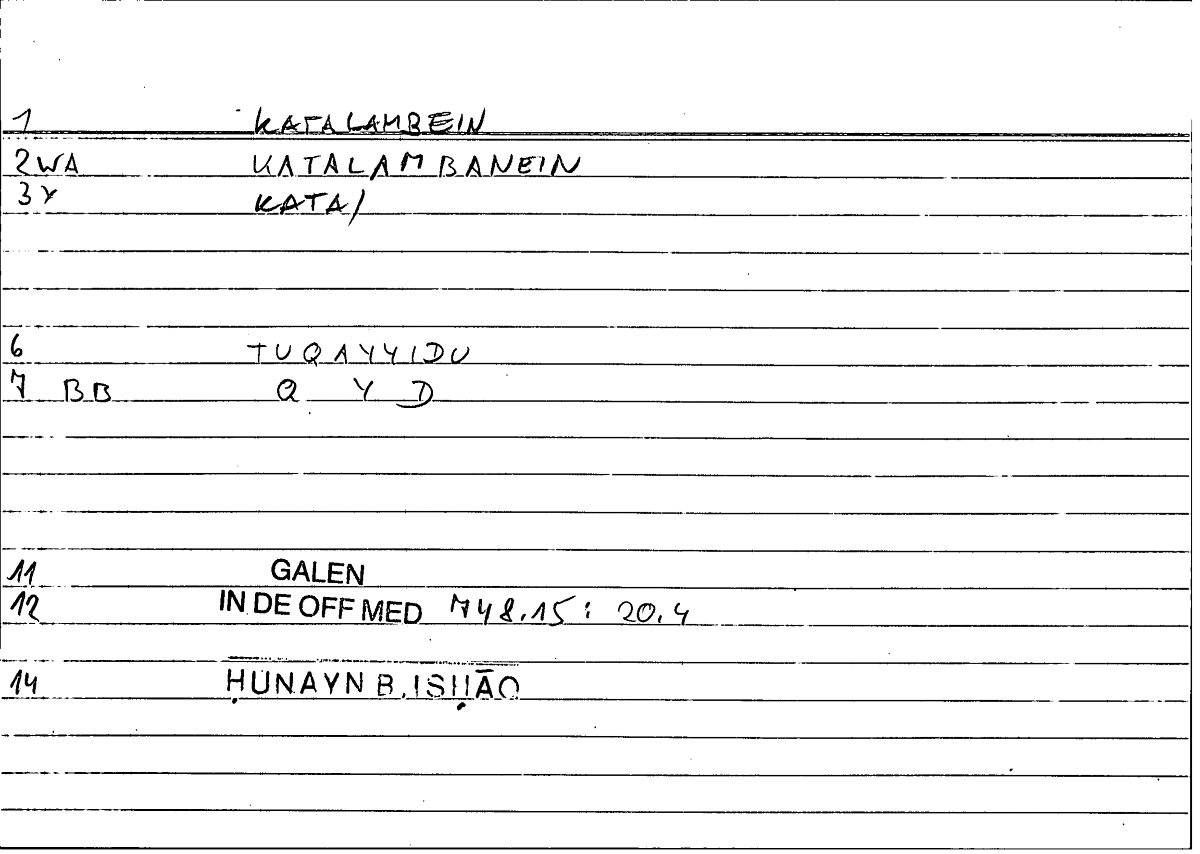 1 KATALAMBEIN
2WA KATALAMBANEIN
3Y KATA/
6 TUQAYYIDU
7 BB Q Y D
11 GALEN
12 IN DE OFF MED 748.15 : 20.4
14 ḤUNAYN B. ISḤĀQ